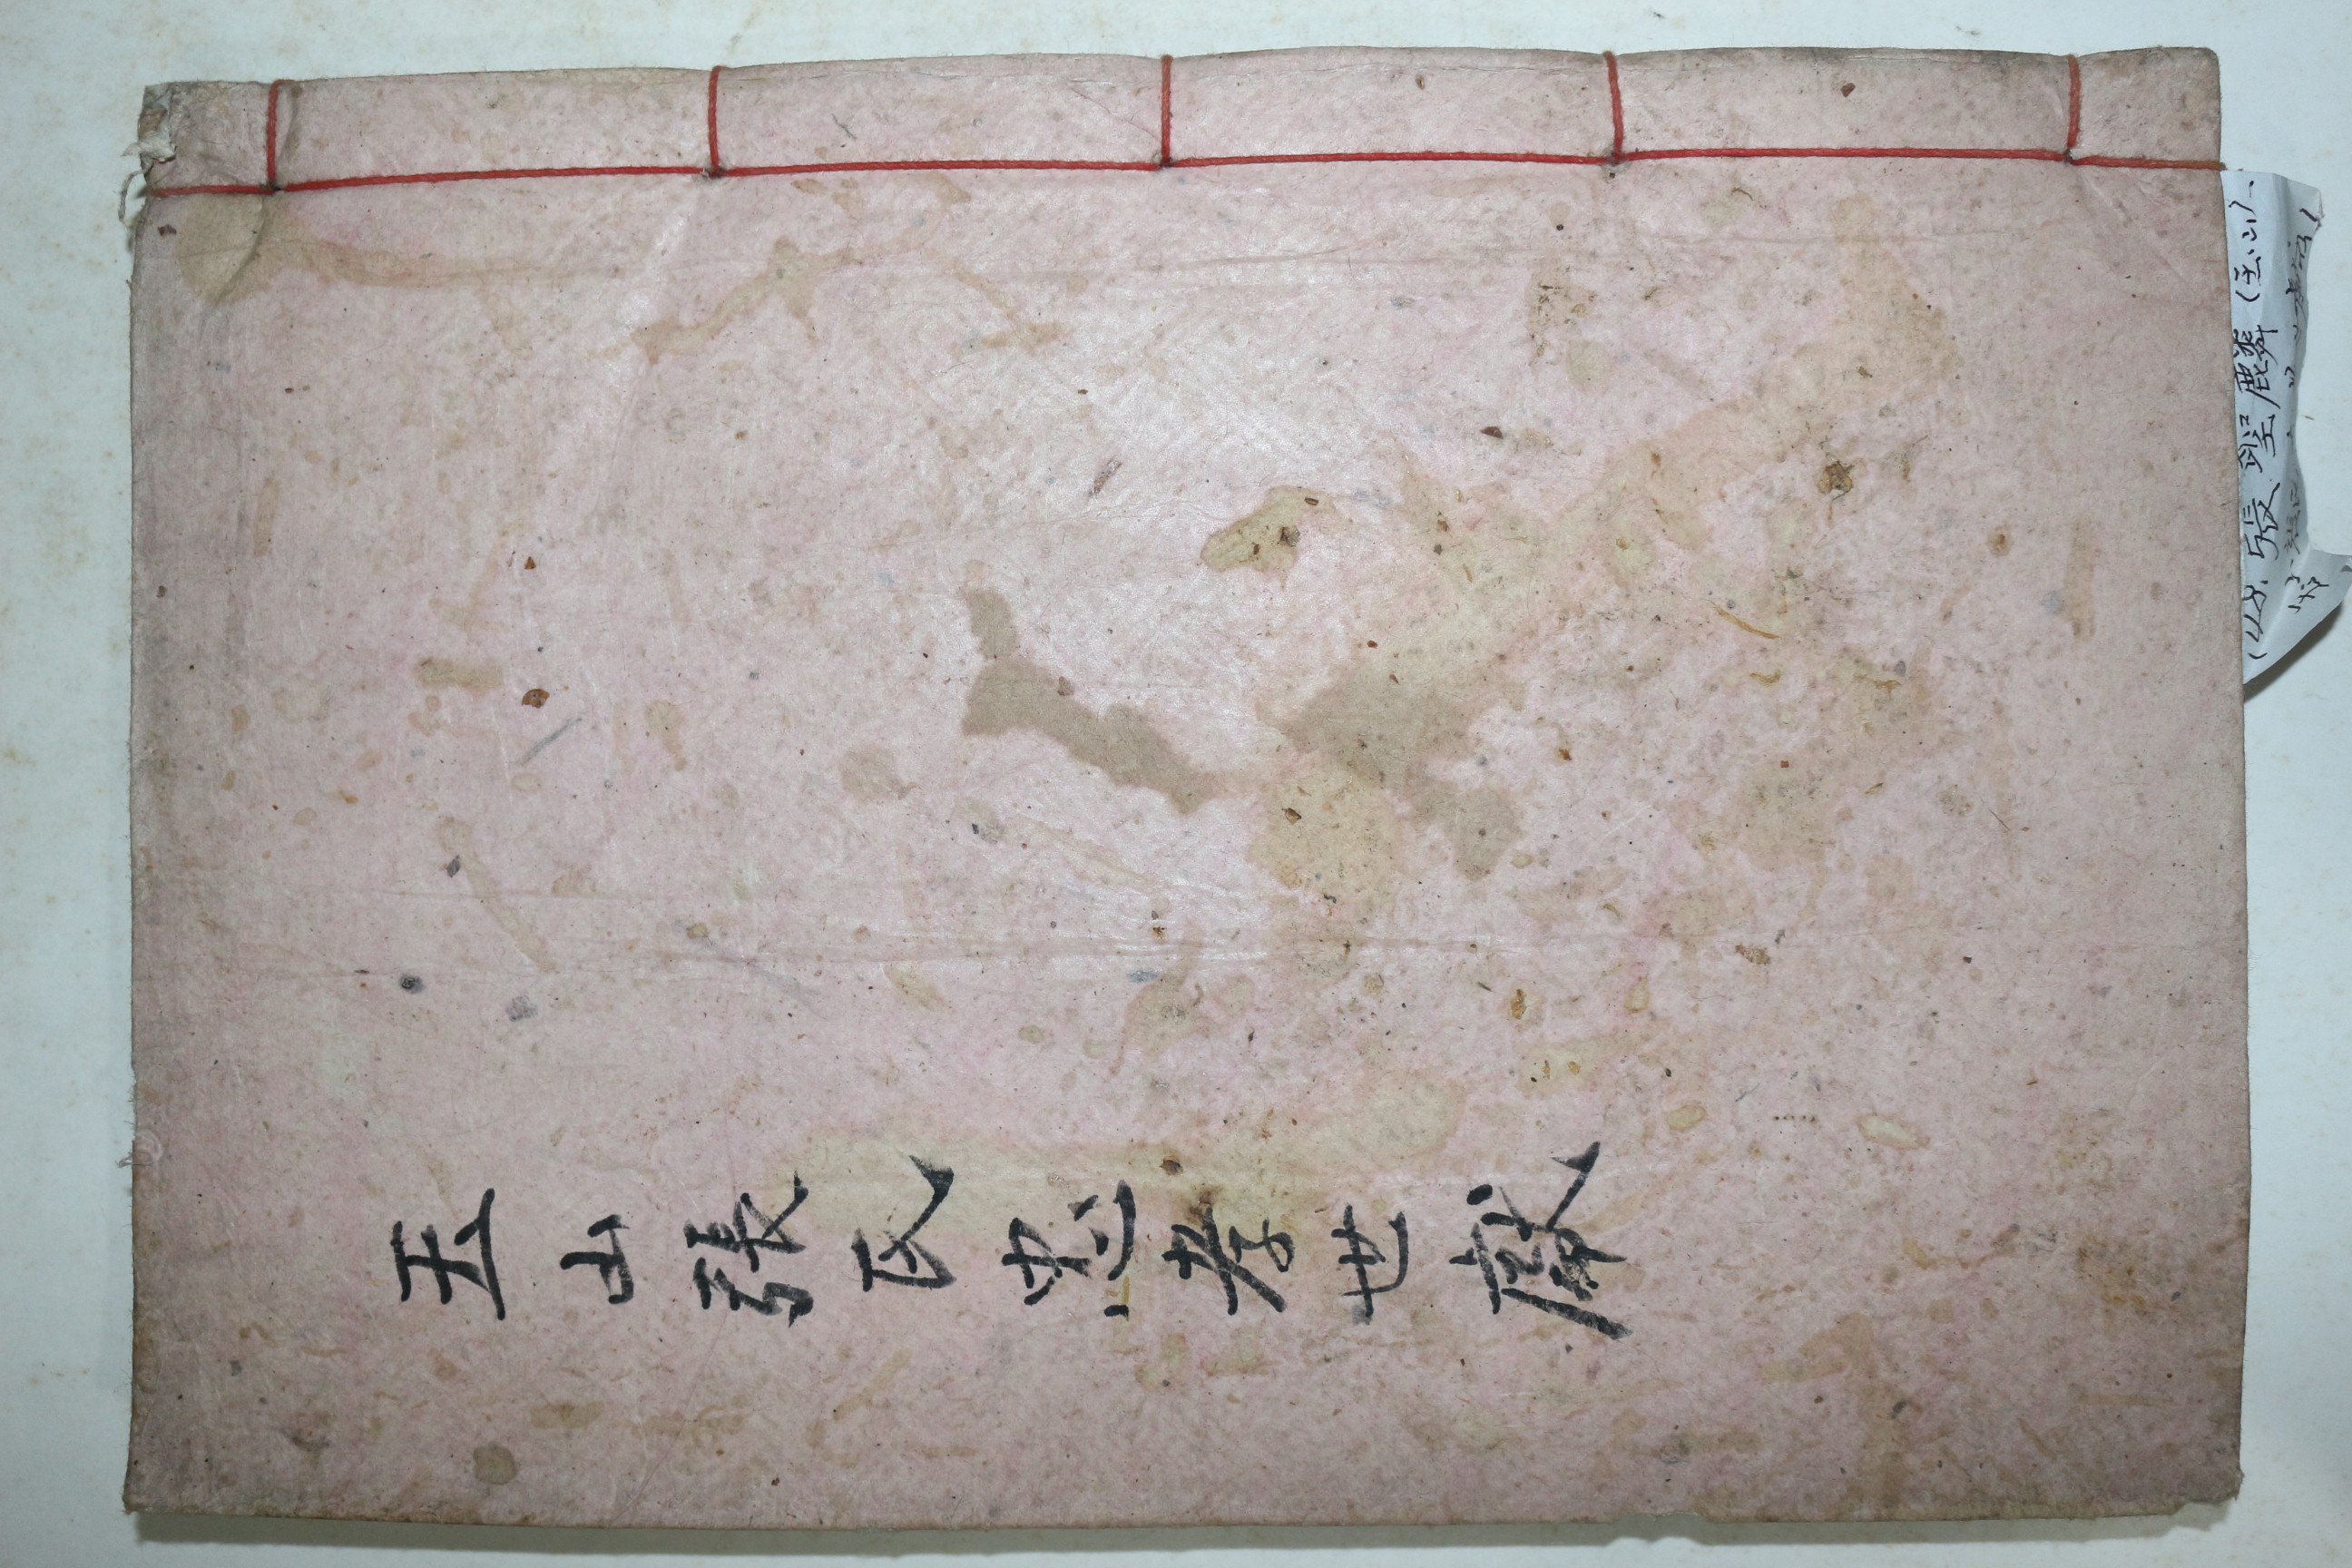 玉山張氏忠孝世獻
148. 張聖麟 (玉山)